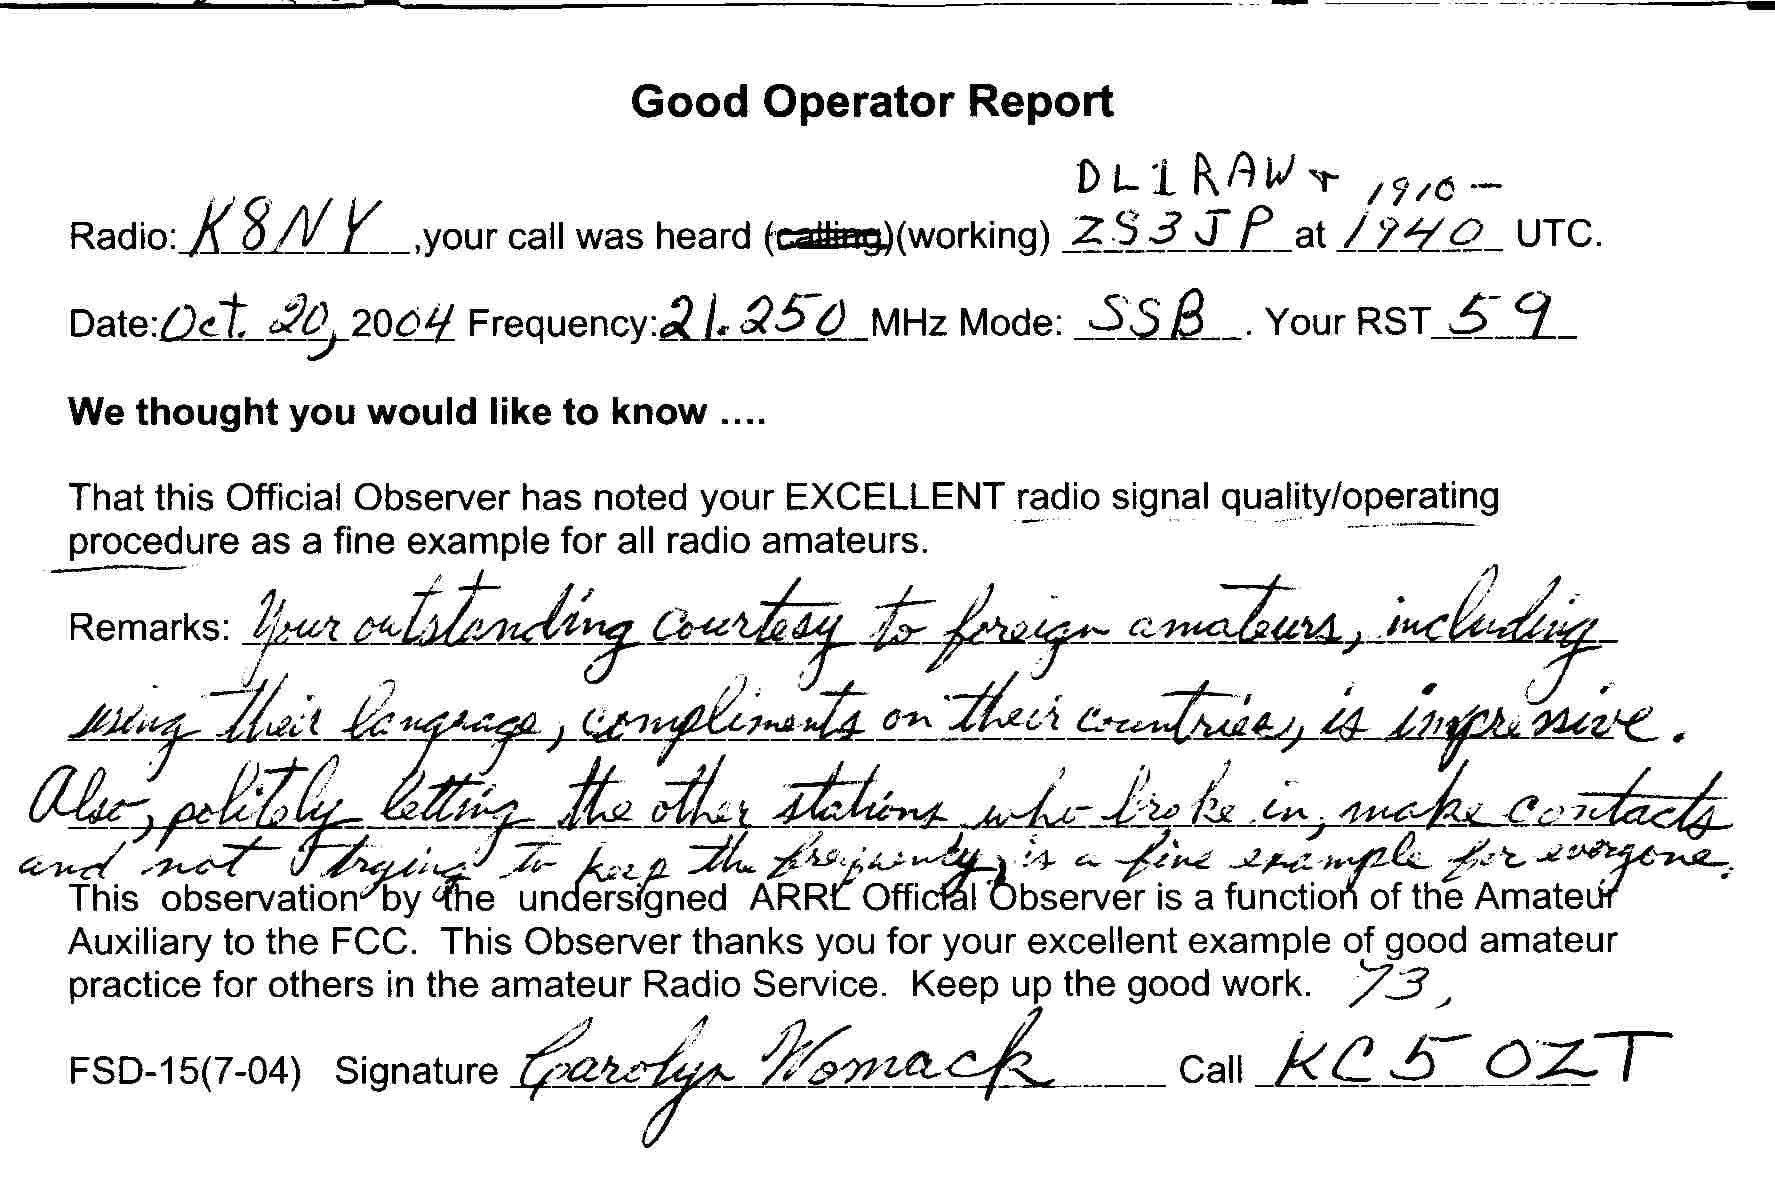 Good Operator Report
DL1RAW + 1910 -
Radio: K8NY ,your call was heard (calling)(working) ZS3JP at 1940 UTC.
Date: Oct. 20, 2004 Frequency: 21.250 MHz Mode: SSB . Your RST 59
We thought you would like to know ....
That this Official Observer has noted your EXCELLENT radio signal quality/operating
procedure as a fine example for all radio amateurs.
Remarks: Your outstanding courtesy to foreign amateurs, including
using their language, compliments on their countries, is impressive.
Also, politely letting the other stations who broke in, make contacts
and not trying to keep the frequency, is a fine example for everyone.
This observation by the undersigned ARRL Official Observer is a function of the Amateur
Auxiliary to the FCC. This Observer thanks you for your excellent example of good amateur
practice for others in the amateur Radio Service. Keep up the good work. 73,
FSD-15(7-04) Signature Carolyn Womack Call KC5OZT